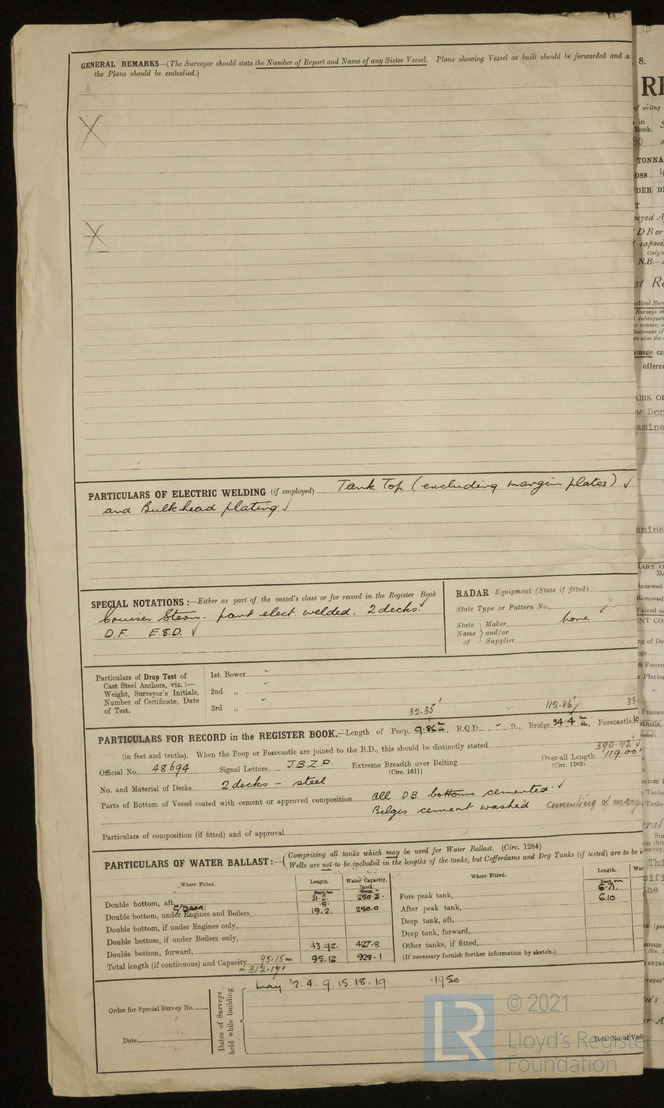 GENERAL REMARKS—(The Surveyor should state the Number of Report and Name of any Sister Vessel. Plans showing Vessel as built should be forwarded and a
the Plans should be embodied.)
X
X
PARTICULARS OF ELECTRIC WELDING (if employed) Tank Top (excluding margin plates) ✓
and Bulkhead plating ✓
SPECIAL NOTATIONS:—Either as part of the vessel's class or for record in the Register Book
Cruiser Stern. part elect. welded. 2 decks
D.F. E.S.D. ✓
RADAR Equipment (State if fitted)
State Type or Pattern No.
State Name of Maker and/or Supplier none ✓
Particulars of Drop Test of
Cast Steel Anchors, viz.:—
Weight, Surveyor's Initials,
Number of Certificate, Date
of Test.
1st Bower
2nd „
3rd „
32.35 112.86
PARTICULARS FOR RECORD in the REGISTER BOOK.—Length of Poop 9.86 m, R.Q.D. - ft., Bridge 34.4 m, Forecastle
(in feet and tenths). When the Poop or Forecastle are joined to the B.D., this should be distinctly stated
390.42
Official No. 48694 Signal Letters JBZP. Extreme Breadth over Belting (Circ. 1611) Over-all Length 119.00 (Circ. 1703)
No. and Material of Decks 2 decks - steel
Parts of Bottom of Vessel coated with cement or approved composition all D.B. bottoms cemented.
Bilges cement washed cementing of
Particulars of composition (if fitted) and of approval
PARTICULARS OF WATER BALLAST:—(Comprising all tanks which may be used for Water Ballast. (Circ. 1284)
Wells are not to be included in the lengths of the tanks, but Cofferdams and Dry Tanks (if tested) are to be
Where Fitted. Length. Water Capacity. Where Fitted. Length.
Double bottom, aft, Fore peak tank, 6.71
Double bottom, under Engines and Boilers, 19.2 250.0 After peak tank, 6.10
Double bottom, if under Engines only, Deep tank, aft,
Double bottom, if under Boilers only, Deep tank, forward,
Double bottom, forward, 43.92 427.8 Other tanks, if fitted,
Total length (if continuous) and Capacity 95.15 m 95.12 929.1 (If necessary furnish further information by sketch.)
Order for Special Survey No.
Date
Dates of Surveys held while building
May 2. 4. 9. 15. 18. 19 1950
Total No. of Visit
© 2021
Lloyd's Register
Foundation